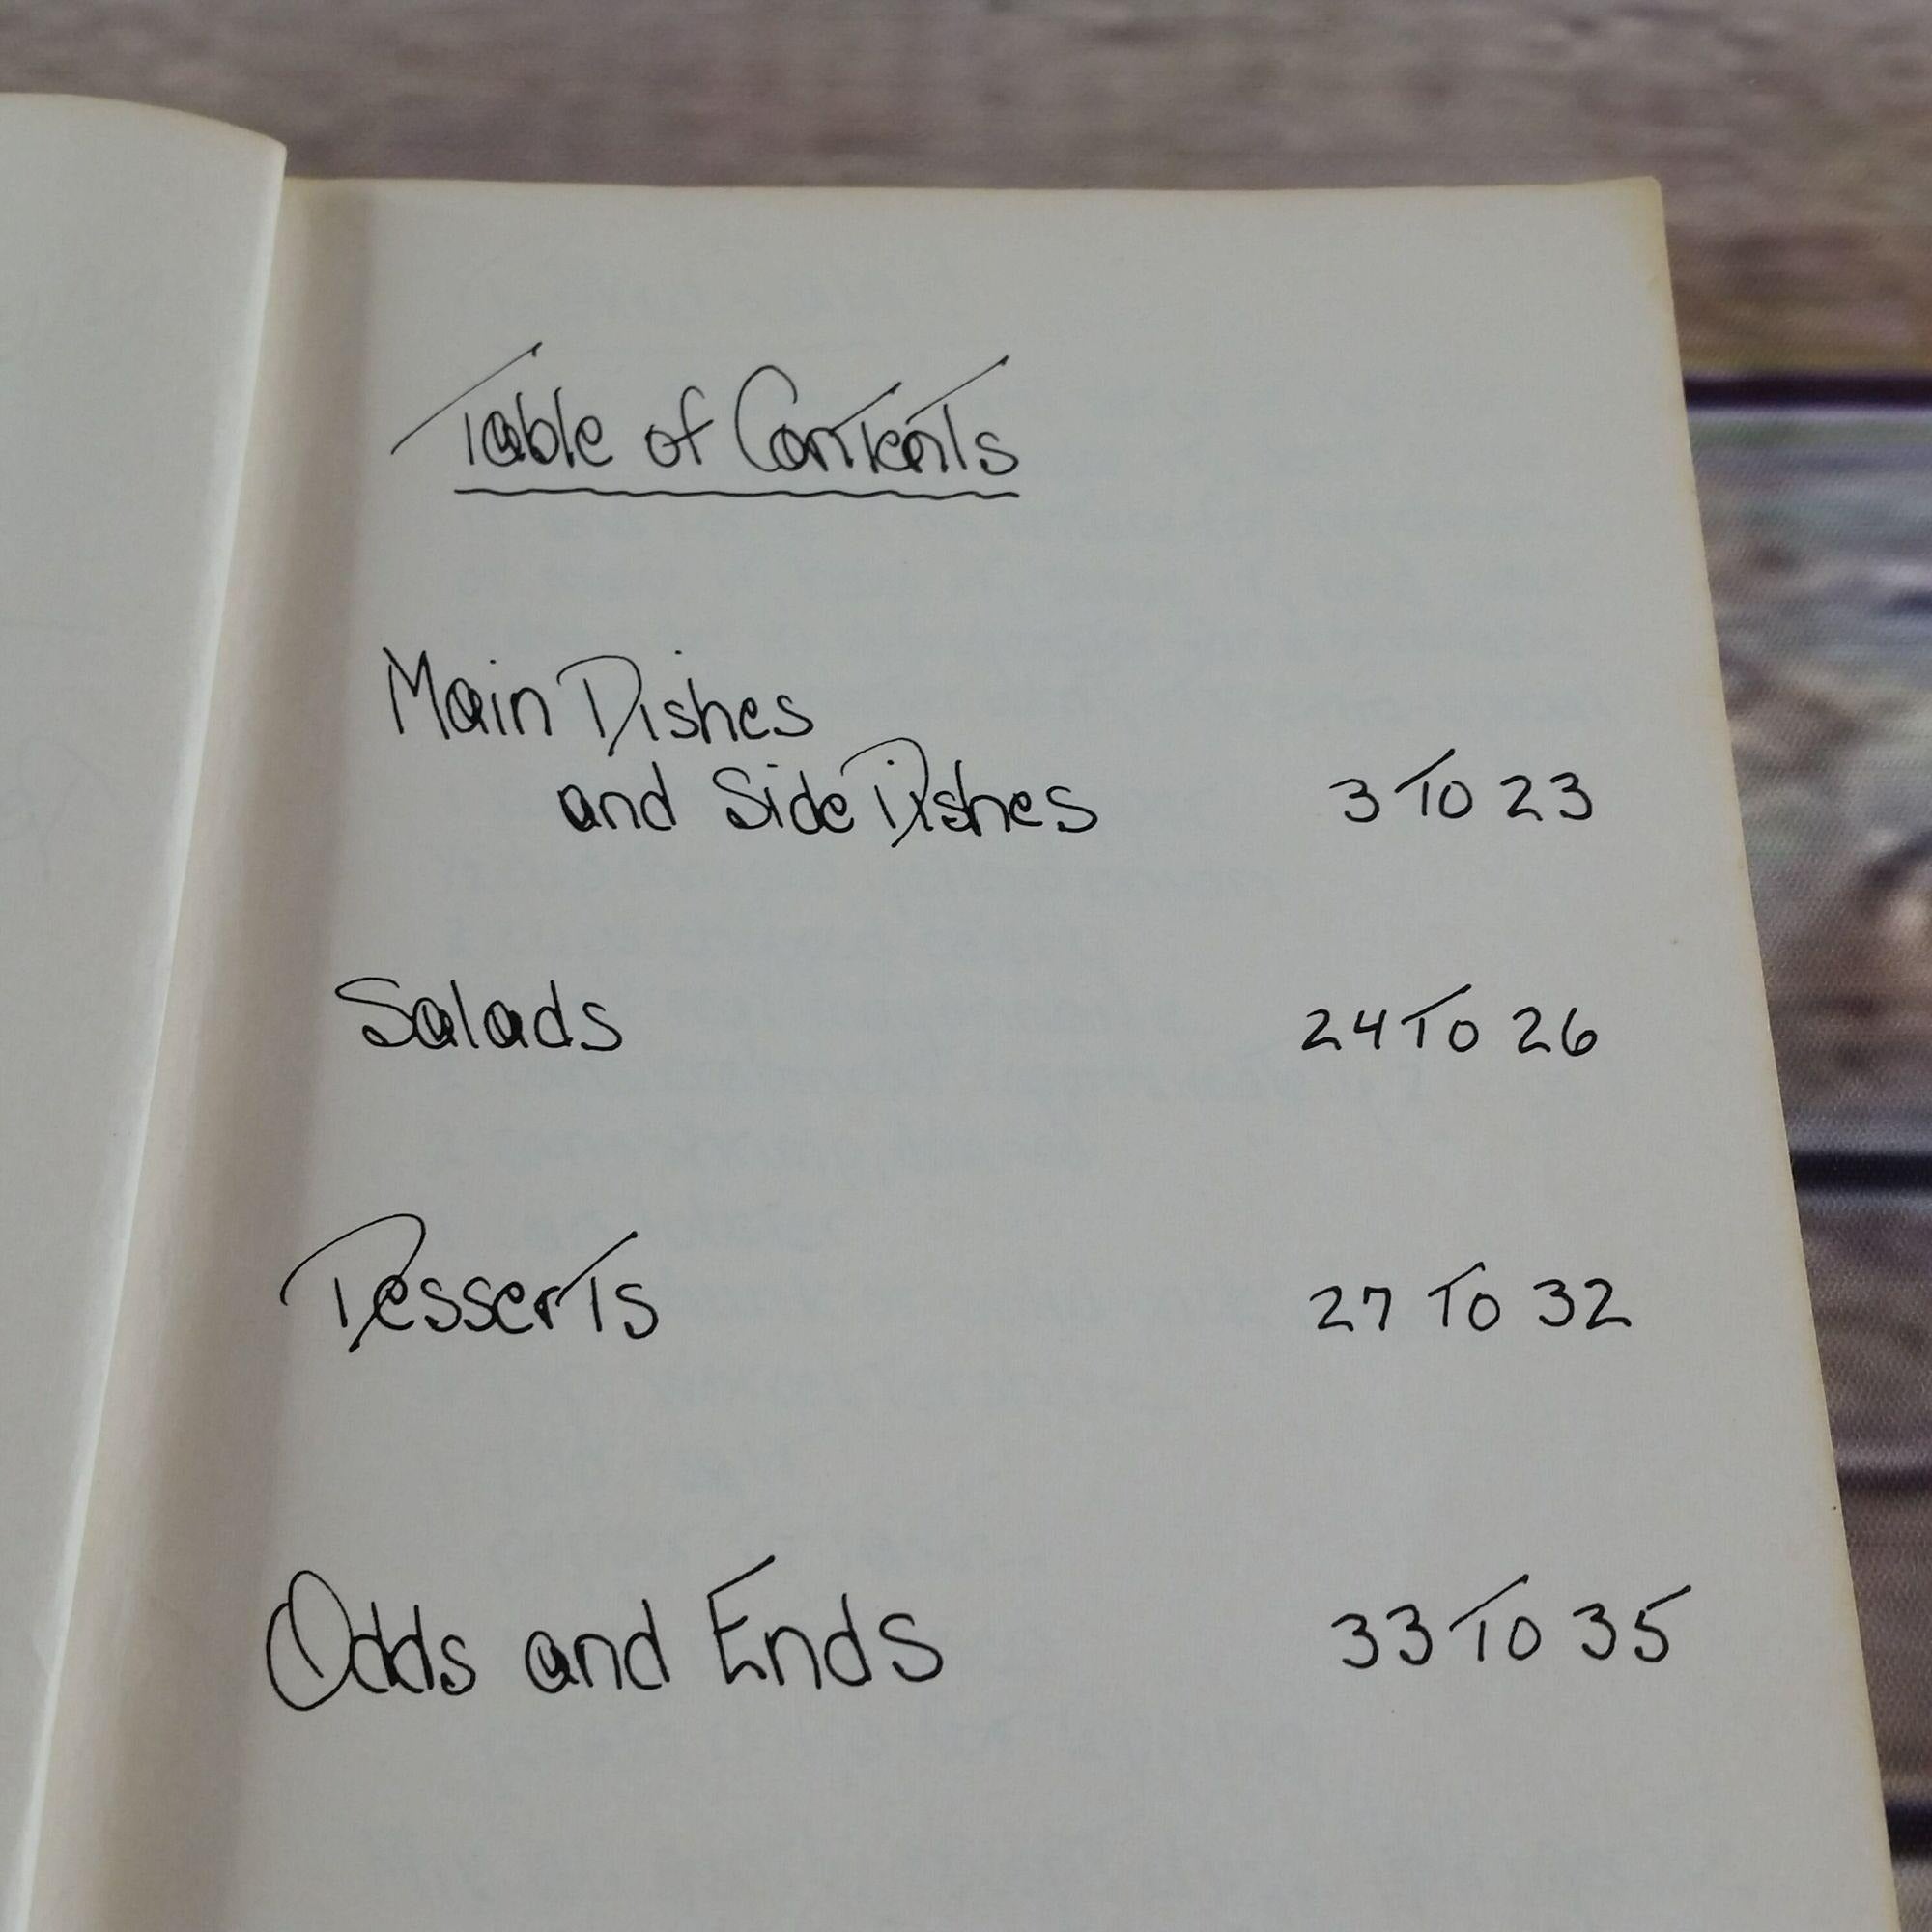 Table of Contents
Main Dishes
and Side Dishes 3 To 23
Salads 24 To 26
Desserts 27 To 32
Odds and Ends 33 To 35